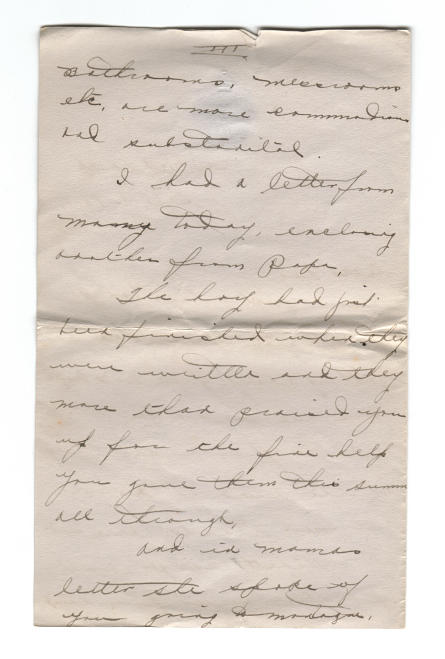 III
Bathrooms, messrooms
etc, are more commodious
and substantial.
I had a letter from
mamy today, enclosing
another from Papa,
The hay had just
been finished when they
were writtle and they
more than praised you
up for the fine help
you gave them this summ
all through,
and in mamas
letter she spoke of
you going to